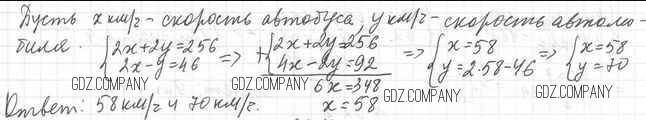 Пусть x км/г - скорость автобуса, y км/г - скорость автомо-
биля. { 2x+2y=256 2x-y=46 => + { 2x+2y=256 4x-2y=92 => { x=58 y=2·58-46 => { x=58 y=70
GDZ.COMPANY GDZ.COMPANY 6x=348 GDZ.COMPANY GDZ.COMPANY
Ответ: 58 км/г и 70 км/г. x=58